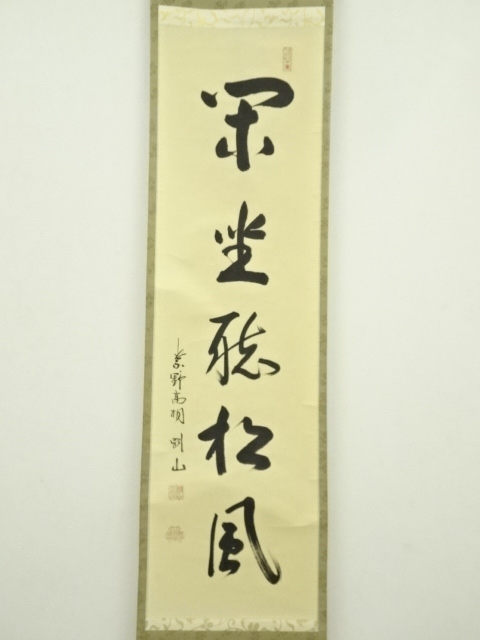 閑坐聴松風
紫野高桐剛山